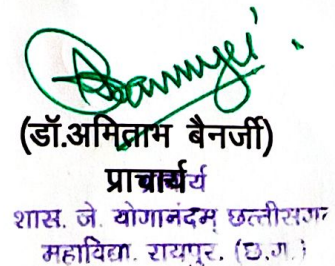 (डॉ.अमिताभ बैनर्जी)
प्राचार्य
शास. जे. योगानंदम् छत्तीसगढ़
महाविद्या. रायपुर. (छ.ग.)